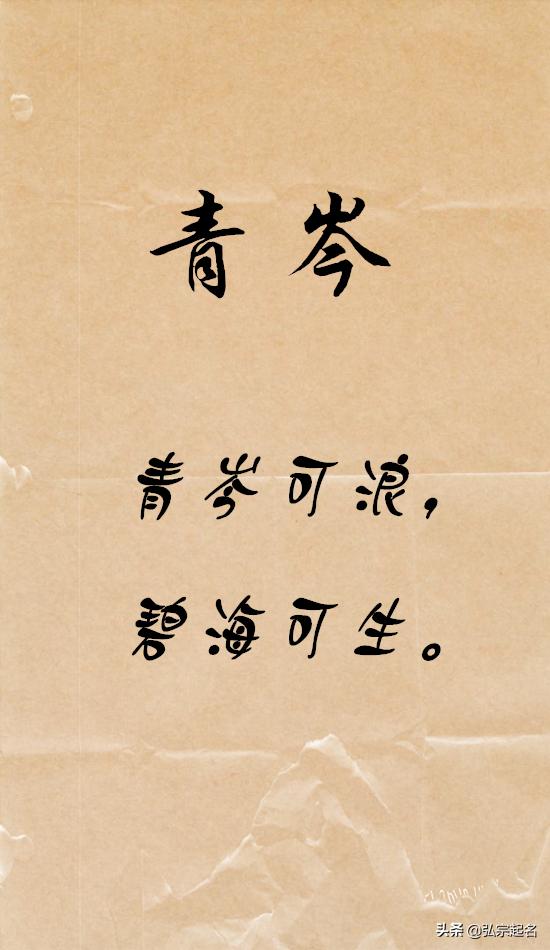 青岑
青岑可浪，
碧海可生。
头条 @弘宗起名